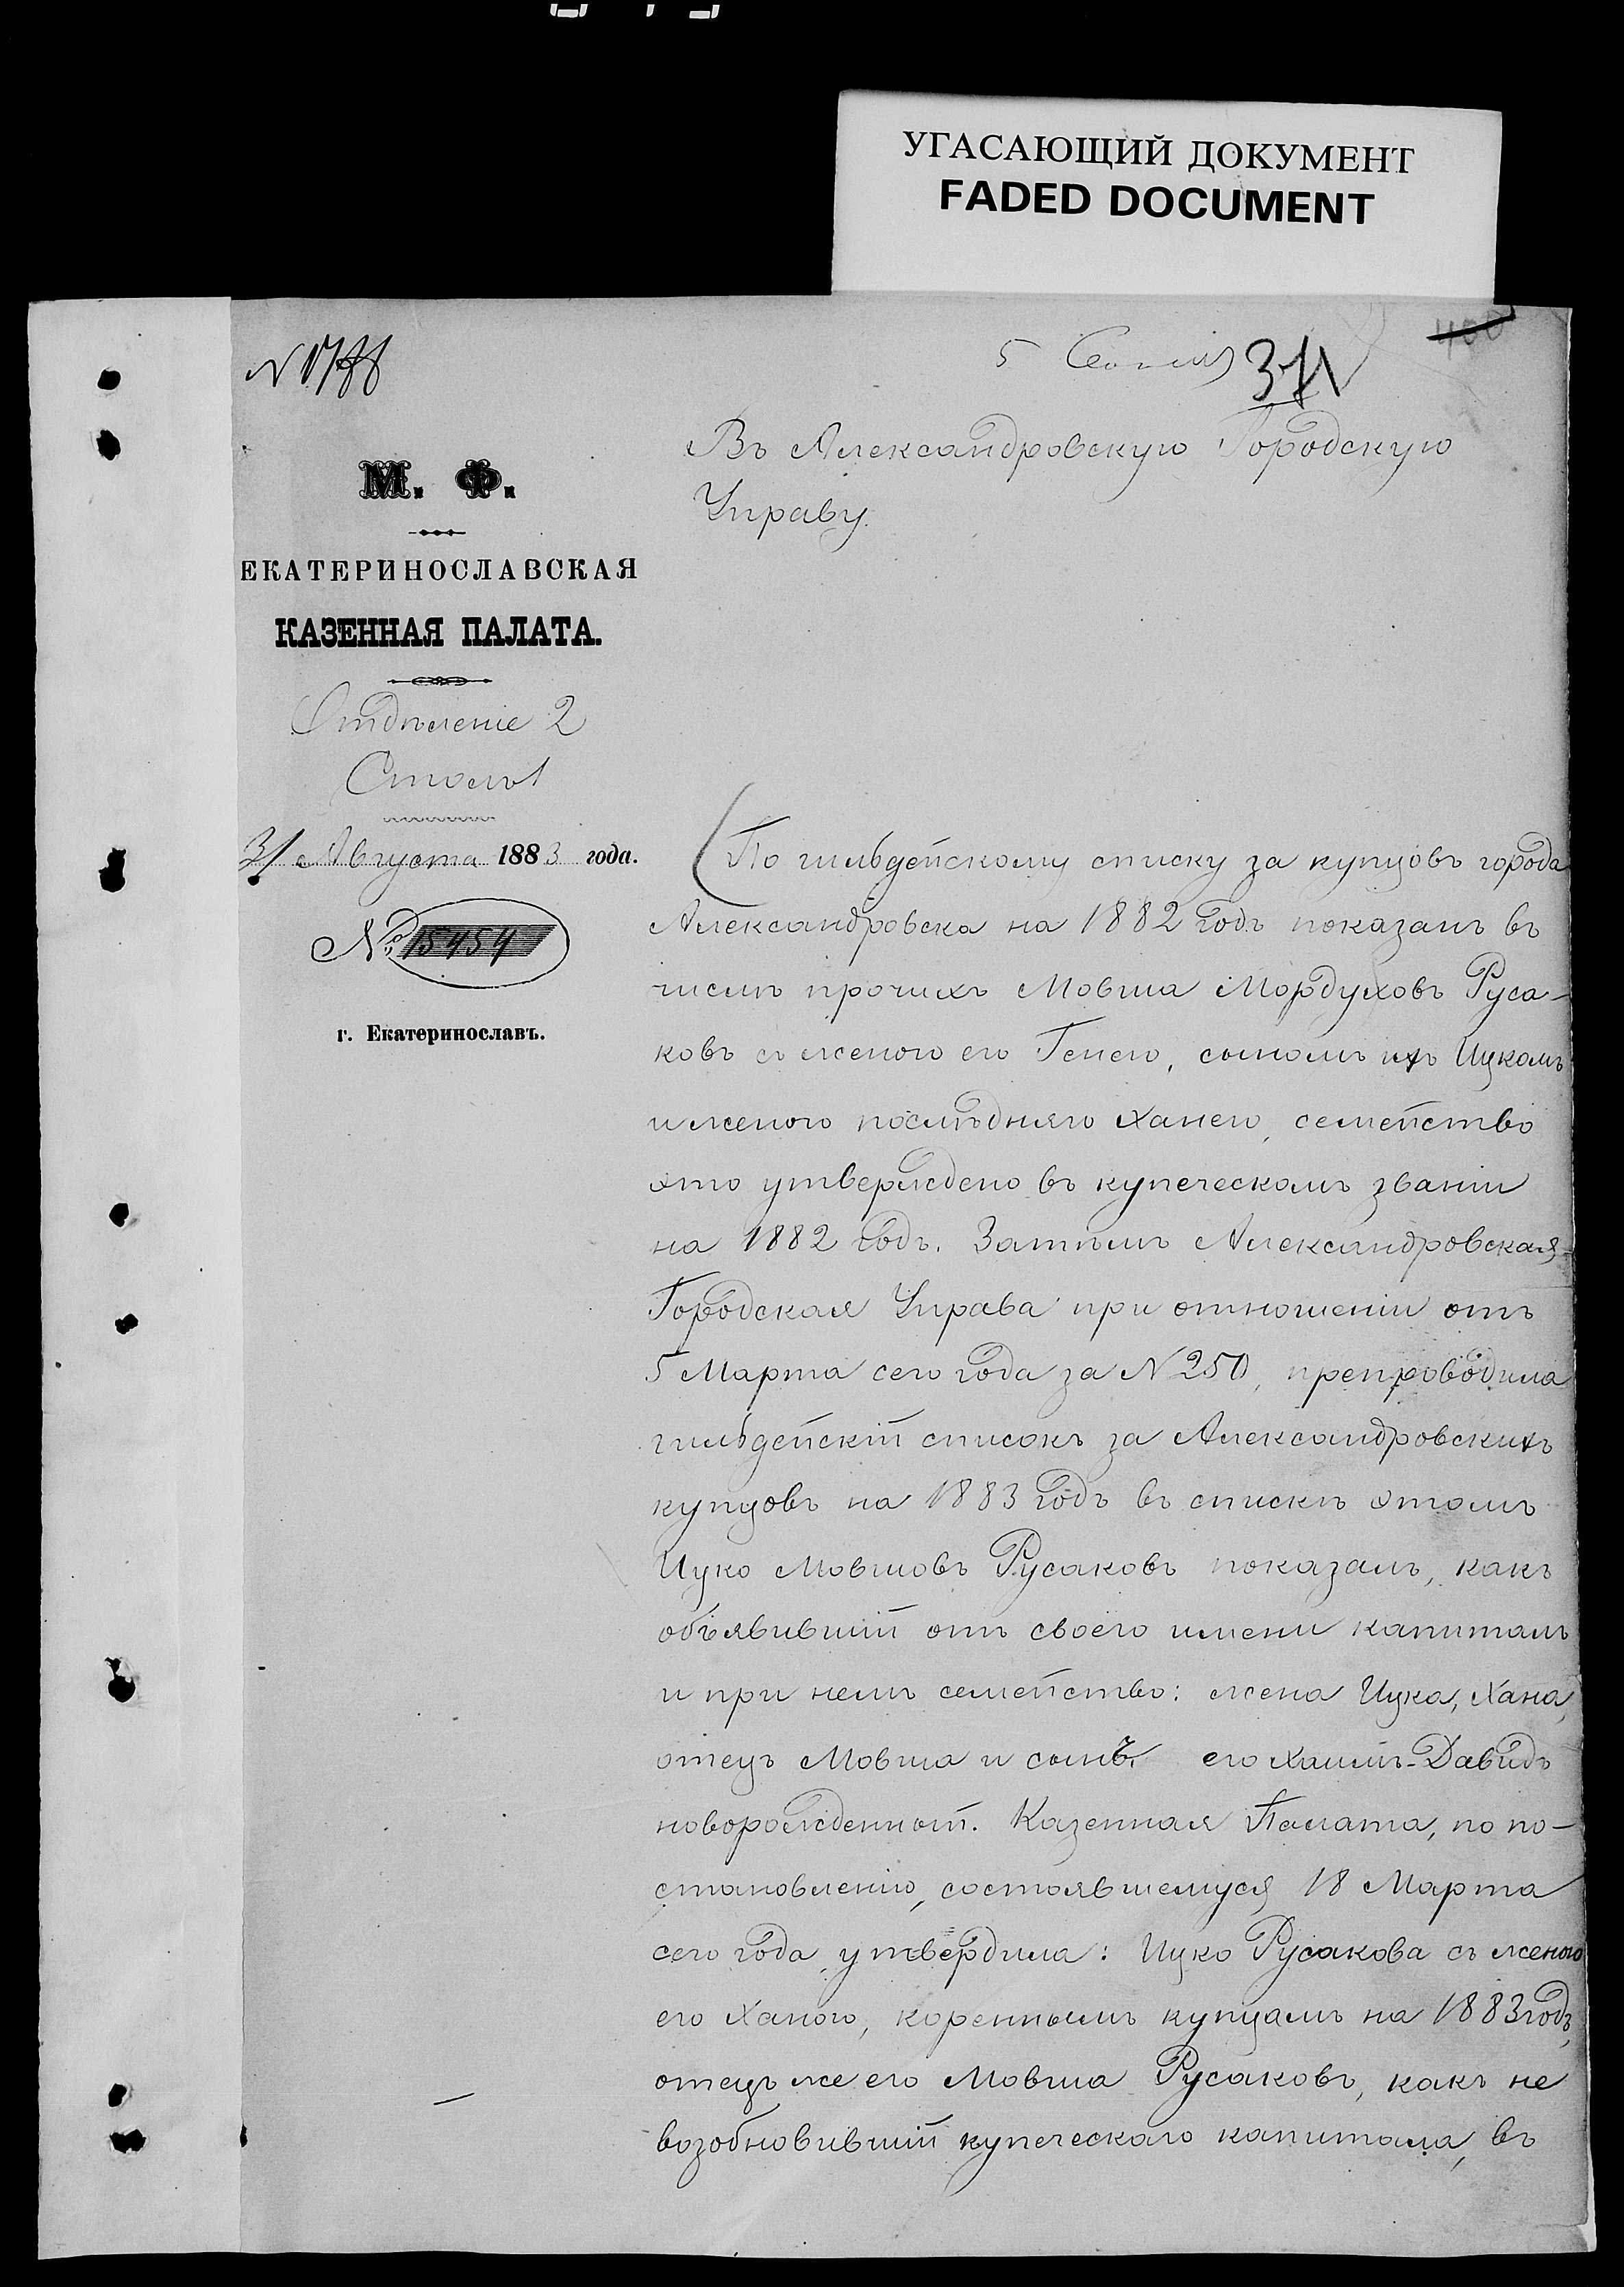 УГАСАЮЩИЙ ДОКУМЕНТ
FADED DOCUMENT
5
N
Въ Александровскую Городскую
Управу.
М. Ф.
ЕКАТЕРИНОСЛАВСКАЯ
КАЗЕННАЯ ПАЛАТА.
Отдѣленіе 2
Столъ 1
31 Августа 1883 года.
№ 15454
г. Екатеринославъ.
По гильдейскому списку за купцовъ города
Александровска на 1882 годъ показанъ въ
числѣ прочихъ Мовша Мордуховъ Руса-
ковъ съ женою его Генею, сыномъ ихъ Ицкомъ
и женою послѣдняго Ханею, семейство
это утверждено въ купеческомъ званіи
на 1882 годъ. Затѣмъ Александровская
Городская Управа при отношеніи отъ
5 Марта сего года за N 250, препроводила
гильдейскій списокъ за Александровскихъ
купцовъ на 1883 годъ въ спискѣ этомъ
Ицко Мовшовъ Русаковъ показанъ, какъ
объявившій отъ своего имени капиталъ
и при немъ семейство: жена Ицка, Хана,
отецъ Мовша и сынъ его Хаимъ-Давидъ
новорожденный. Казенная Палата, по по-
становленію, состоявшемуся 18 Марта
сего года, утвердила: Ицко Русакова съ женою
его Ханою, кореннымъ купцамъ на 1883 годъ,
отецъ же его Мовша Русаковъ, какъ не
возобновившій купеческаго капитала, въ